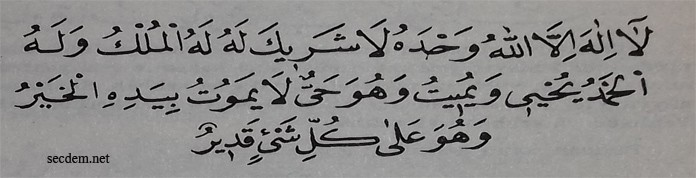 لَا اِلٰهَ اِلَّا اللّٰهُ وَحْدَهُ لَا شَرِيكَ لَهُ لَهُ الْمُلْكُ وَلَهُ
الْحَمْدُ يُحْيِى وَيُمِيتُ وَهُوَ حَىٌّ لَا يَمُوتُ بِيَدِهِ الْخَيْرُ
وَهُوَ عَلٰى كُلِّ شَىْءٍ قَدِيرٌ
secdem.net